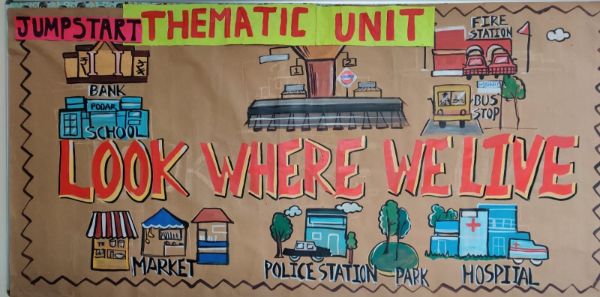 JUMPSTART THEMATIC UNIT
BANK
PODAR
SCHOOL
1
2
FIRE
STATION
BUS
STOP
LOOK WHERE WE LIVE
MARKET
POLICE STATION
PARK
HOSPITAL